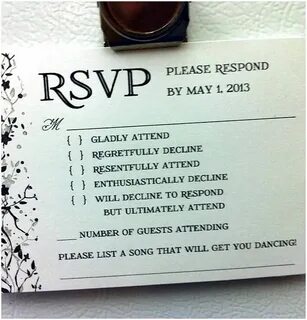 RSVP PLEASE RESPOND
BY MAY 1, 2013
M
{ } GLADLY ATTEND
{ } REGRETFULLY DECLINE
{ } RESENTFULLY ATTEND
{ } ENTHUSIASTICALLY DECLINE
{ } WILL DECLINE TO RESPOND
BUT ULTIMATELY ATTEND
___ NUMBER OF GUESTS ATTENDING
PLEASE LIST A SONG THAT WILL GET YOU DANCING!